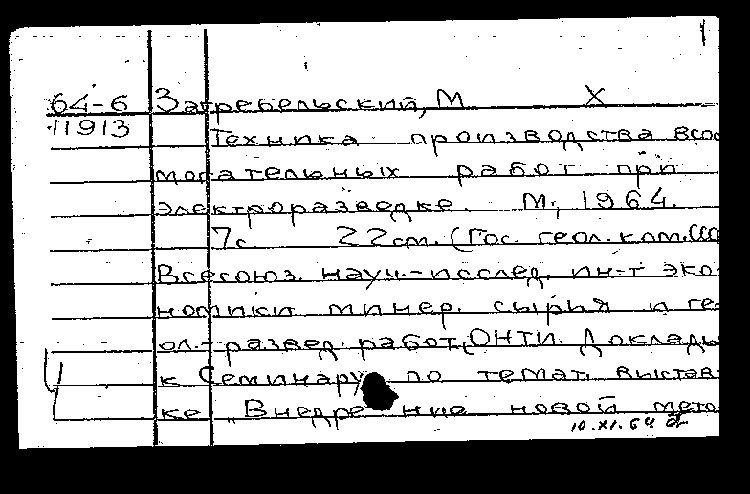 1
64-6 Затребельский, М X
11913 Техника производства вспо
могательных работ при
электроразведке. М., 1964.
7с. 22см. (Гос. геол. ком. ССС
Всесоюз. науч.-исслед. ин-т эко
номики минер. сырья и ге
ол.-развед. работ. ОНТИ. Доклады
к Семинару по темат. выстав
ке „Внедрение новой мето
10.XI.64